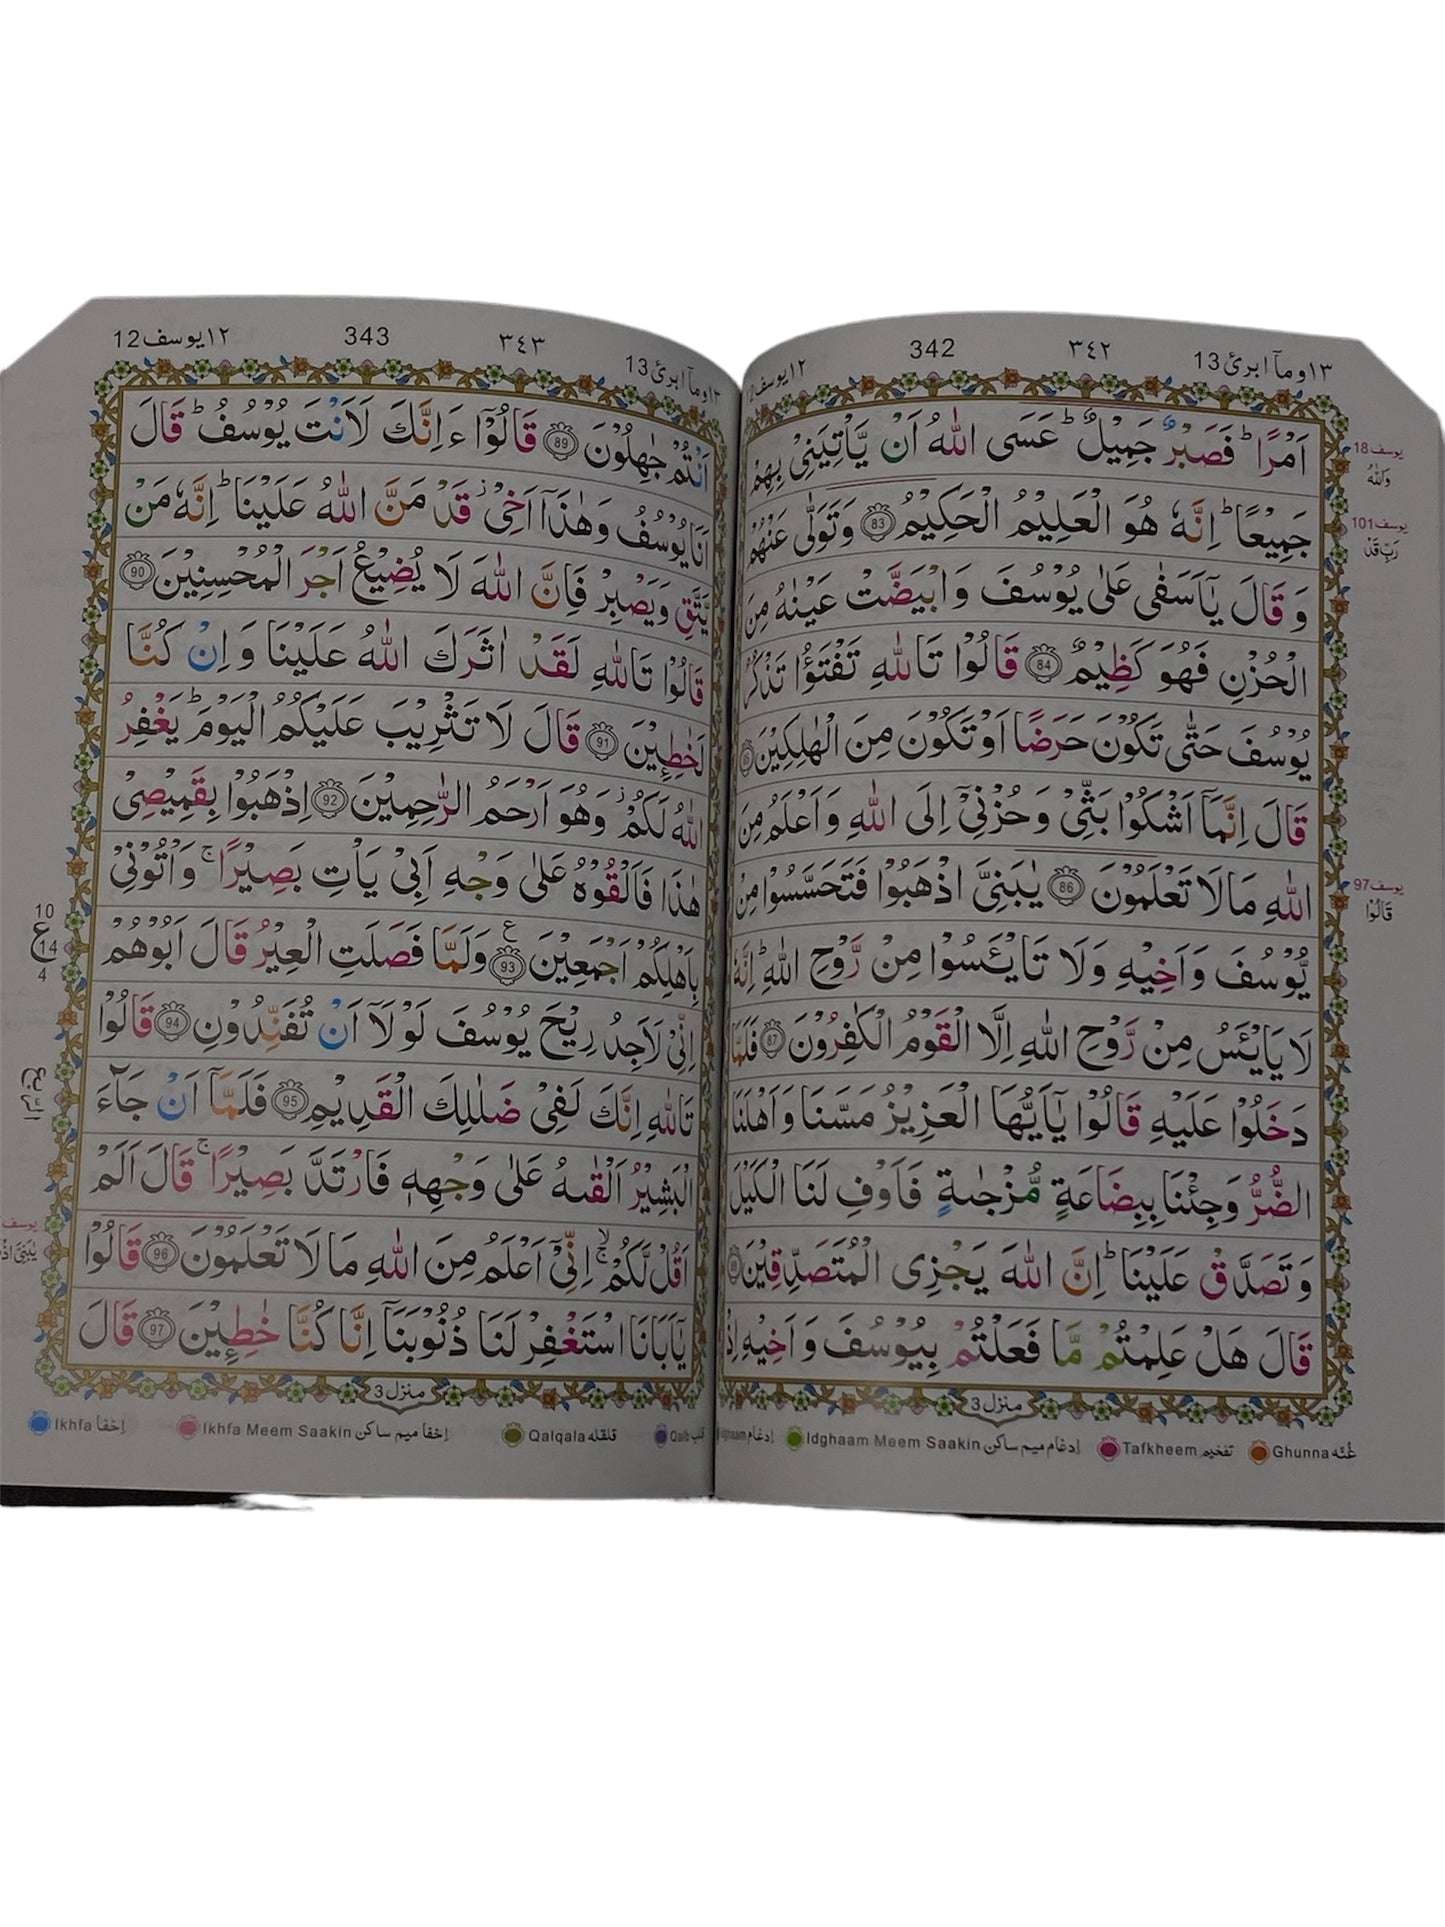 ١٣ومآ ابرئ13 ٣٤٢ 342 ١٢يوسف12
اَمْرًا ؕ فَصَبْرٌ جَمِيْلٌ ؕ عَسَى اللّٰهُ اَنْ يَّاْتِيَنِيْ بِهِمْ
جَمِيْعًا ؕ اِنَّهٗ هُوَ الْعَلِيْمُ الْحَكِيْمُ 83 وَتَوَلّٰى عَنْهُمْ
وَقَالَ يٰۤاَسَفٰى عَلٰى يُوْسُفَ وَابْيَضَّتْ عَيْنٰهُ مِنَ
الْحُزْنِ فَهُوَ كَظِيْمٌ 84 قَالُوْا تَاللّٰهِ تَفْتَؤُا تَذْكُرُ
يُوْسُفَ حَتّٰى تَكُوْنَ حَرَضًا اَوْ تَكُوْنَ مِنَ الْهٰلِكِيْنَ 85
قَالَ اِنَّمَاۤ اَشْكُوْا بَثِّيْ وَحُزْنِيْۤ اِلَى اللّٰهِ وَاَعْلَمُ مِنَ
اللّٰهِ مَا لَا تَعْلَمُوْنَ 86 يٰبَنِيَّ اذْهَبُوْا فَتَحَسَّسُوْا مِنْ
يُّوْسُفَ وَاَخِيْهِ وَلَا تَايْـَٔسُوْا مِنْ رَّوْحِ اللّٰهِ ؕ اِنَّهٗ
لَا يَايْـَٔسُ مِنْ رَّوْحِ اللّٰهِ اِلَّا الْقَوْمُ الْكٰفِرُوْنَ 87 فَلَمَّا
دَخَلُوْا عَلَيْهِ قَالُوْا يٰۤاَيُّهَا الْعَزِيْزُ مَسَّنَا وَاَهْلَنَا
الضُّرُّ وَجِئْنَا بِبِضَاعَةٍ مُّزْجٰىةٍ فَاَوْفِ لَنَا الْكَيْلَ
وَتَصَدَّقْ عَلَيْنَا ؕ اِنَّ اللّٰهَ يَجْزِى الْمُتَصَدِّقِيْنَ 88
قَالَ هَلْ عَلِمْتُمْ مَّا فَعَلْتُمْ بِيُوْسُفَ وَاَخِيْهِ اِذْ
منزل 3
يوسف18
وَاللّٰهُ
يوسف101
رَبِّ قَدْ
يوسف97
قَالُوْا
١٣ومآ ابرئ13 ٣٤٣ 343 ١٢يوسف12
اَنْتُمْ جٰهِلُوْنَ 89 قَالُوْۤا ءَاِنَّكَ لَاَنْتَ يُوْسُفُ ؕ قَالَ
اَنَا يُوْسُفُ وَهٰذَاۤ اَخِيْ ؗ قَدْ مَنَّ اللّٰهُ عَلَيْنَا ؕ اِنَّهٗ مَنْ
يَّتَّقِ وَيَصْبِرْ فَاِنَّ اللّٰهَ لَا يُضِيْعُ اَجْرَ الْمُحْسِنِيْنَ 90
قَالُوْا تَاللّٰهِ لَقَدْ اٰثَرَكَ اللّٰهُ عَلَيْنَا وَاِنْ كُنَّا
لَخٰطِـِٕيْنَ 91 قَالَ لَا تَثْرِيْبَ عَلَيْكُمُ الْيَوْمَ ؕ يَغْفِرُ
اللّٰهُ لَكُمْ ؗ وَهُوَ اَرْحَمُ الرّٰحِمِيْنَ 92 اِذْهَبُوْا بِقَمِيْصِيْ
هٰذَا فَاَلْقُوْهُ عَلٰى وَجْهِ اَبِيْ يَاْتِ بَصِيْرًا ۚ وَاْتُوْنِيْ
بِاَهْلِكُمْ اَجْمَعِيْنَ 93 ع وَلَمَّا فَصَلَتِ الْعِيْرُ قَالَ اَبُوْهُمْ
اِنِّيْ لَاَجِدُ رِيْحَ يُوْسُفَ لَوْلَاۤ اَنْ تُفَنِّدُوْنِ 94 قَالُوْا
تَاللّٰهِ اِنَّكَ لَفِيْ ضَلٰلِكَ الْقَدِيْمِ 95 فَلَمَّاۤ اَنْ جَآءَ
الْبَشِيْرُ اَلْقٰىهُ عَلٰى وَجْهِهٖ فَارْتَدَّ بَصِيْرًا ۚ قَالَ اَلَمْ
اَقُلْ لَّكُمْ ۚۙ اِنِّيْۤ اَعْلَمُ مِنَ اللّٰهِ مَا لَا تَعْلَمُوْنَ 96 قَالُوْا
يٰۤاَبَانَا اسْتَغْفِرْ لَنَا ذُنُوْبَنَاۤ اِنَّا كُنَّا خٰطِـِٕيْنَ 97 قَالَ
منزل 3
10
ع
14
4
الربع
يوسف
يٰبَنِيَّ اذْ
Ikhfa إخفا Ikhfa Meem Saakin إخفا ميم ساكن Qalqala قلقله Qalb قلب
إدغام Idghaam Meem Saakin إدغام ميم ساكن Tafkheem تفخيم Ghunna غُنّه